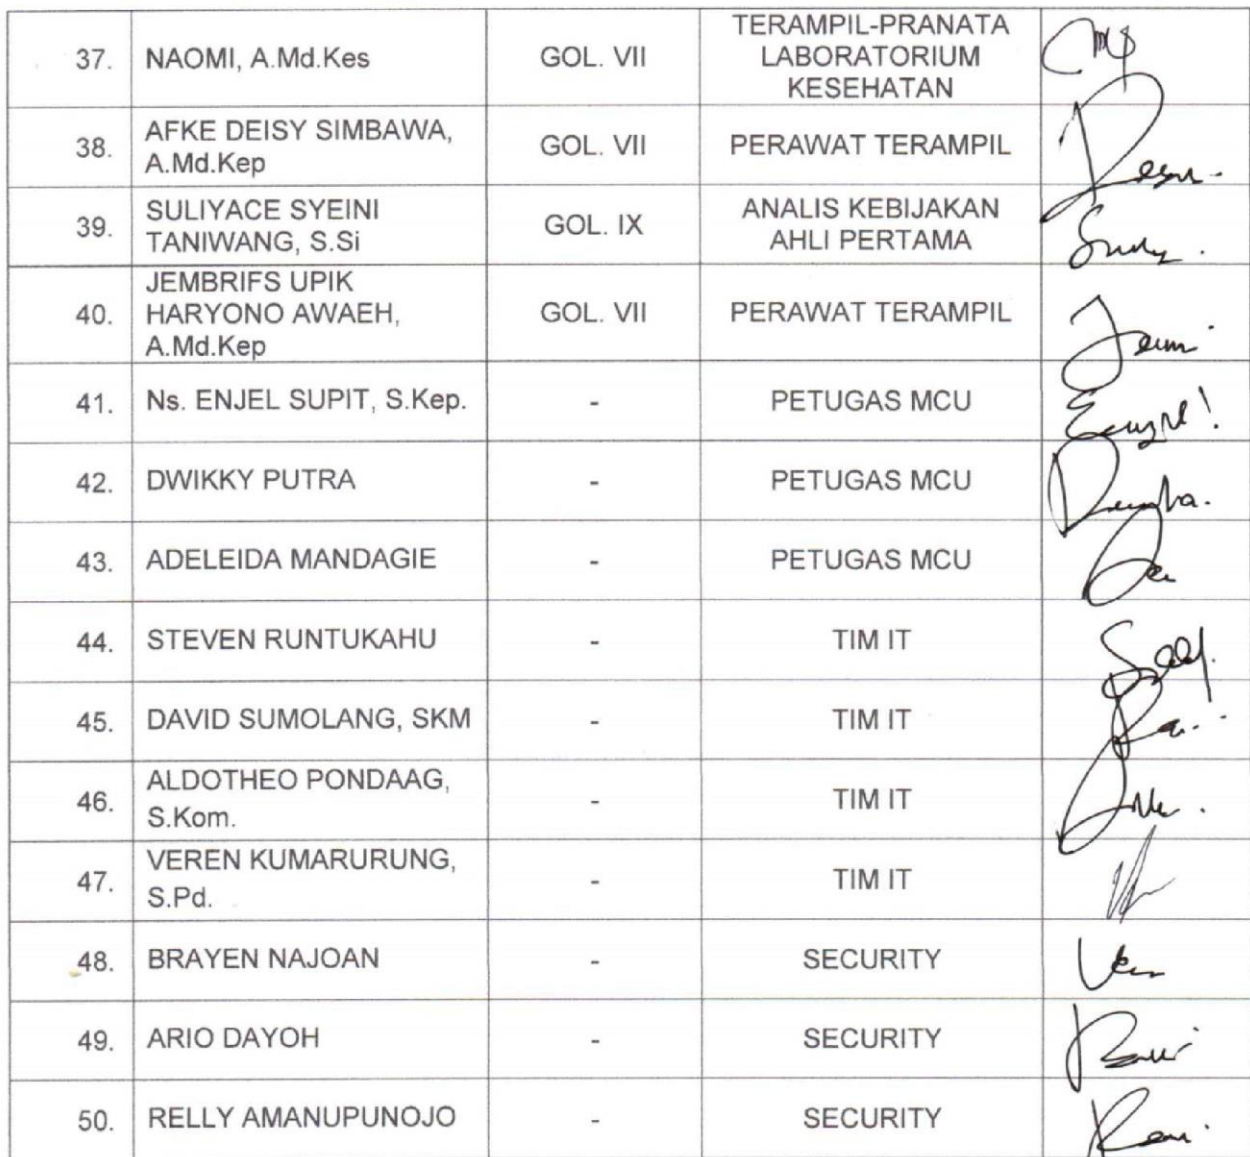 37. NAOMI, A.Md.Kes GOL. VII TERAMPIL-PRANATA
LABORATORIUM
KESEHATAN
38. AFKE DEISY SIMBAWA,
A.Md.Kep GOL. VII PERAWAT TERAMPIL
39. SULIYACE SYEINI
TANIWANG, S.Si GOL. IX ANALIS KEBIJAKAN
AHLI PERTAMA
40. JEMBRIFS UPIK
HARYONO AWAEH,
A.Md.Kep GOL. VII PERAWAT TERAMPIL
41. Ns. ENJEL SUPIT, S.Kep. - PETUGAS MCU
42. DWIKKY PUTRA - PETUGAS MCU
43. ADELEIDA MANDAGIE - PETUGAS MCU
44. STEVEN RUNTUKAHU - TIM IT
45. DAVID SUMOLANG, SKM - TIM IT
46. ALDOTHEO PONDAAG,
S.Kom. - TIM IT
47. VEREN KUMARURUNG,
S.Pd. - TIM IT
48. BRAYEN NAJOAN - SECURITY
49. ARIO DAYOH - SECURITY
50. RELLY AMANUPUNOJO - SECURITY